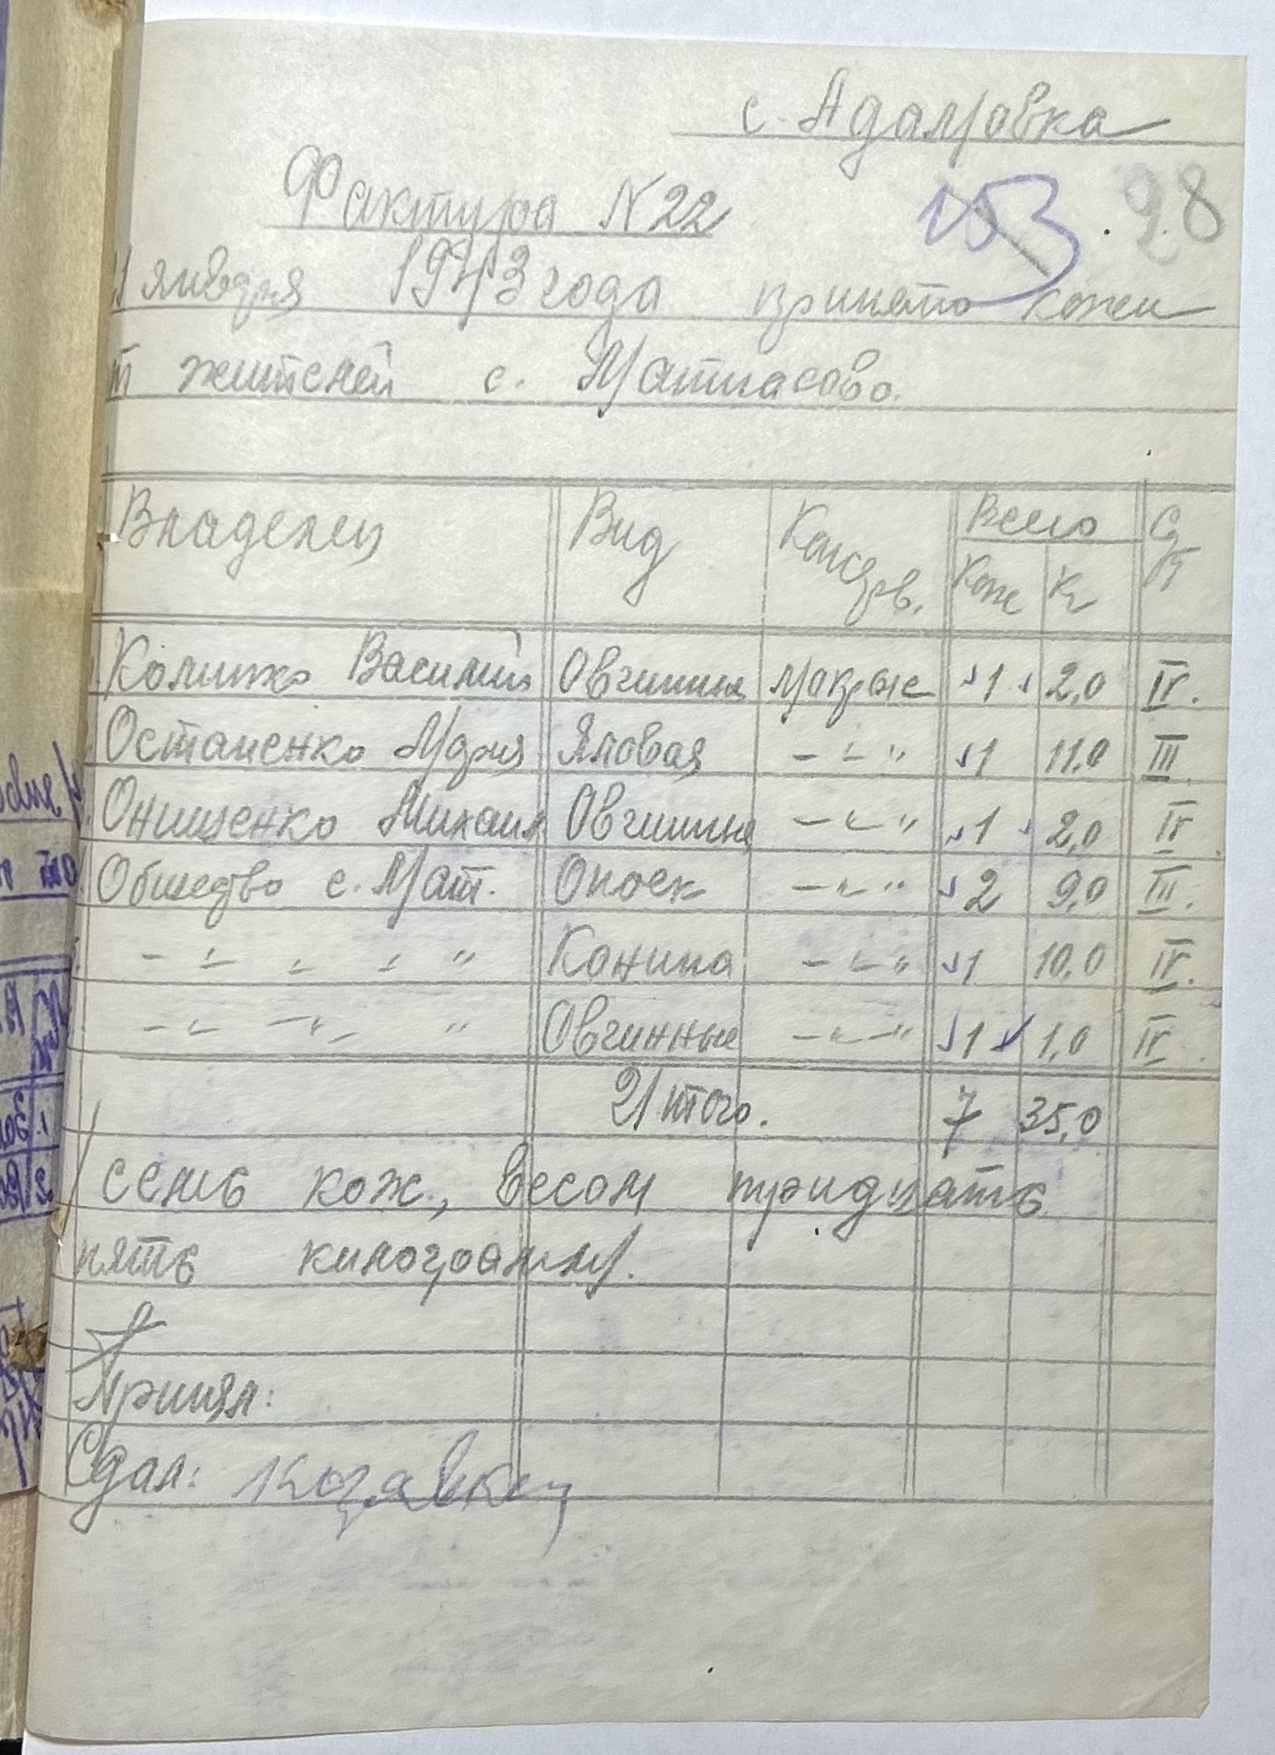 с. Адамовка
Фактура N 22
153 98
1 января 1943 года принято кожи
т жителей с. Матиясово.
Владелец Вид Консерв. Всего Сорт
Кож Кг
Василий Овчинные мокрые 1 2,0 IV.
Остапенко Мария Яловая -"-" 1 11,0 III.
Онищенко Михаил Овчинные -"-" 1 2,0 IV
Общество с. Мат. Опоек -"-" 2 9,0 III.
- " " " " Конина -"-" 1 10,0 IV.
- " -"- " Овчинные -"-" 1 1,0 IV
Итого. 7 35,0
семь кож, весом тридцать
пять килограмм.
Принял:
Сдал: